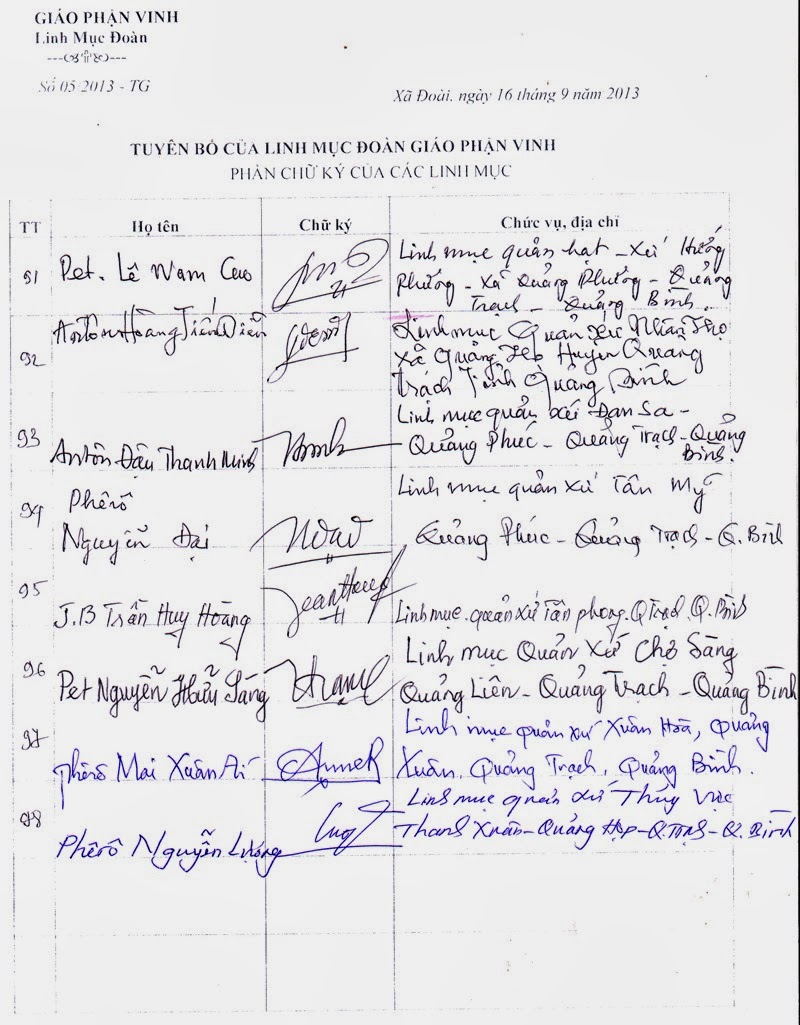 GIÁO PHẬN VINH
Linh Mục Đoàn
Số 05/2013 - TG
Xã Đoài, ngày 16 tháng 9 năm 2013
TUYÊN BỐ CỦA LINH MỤC ĐOÀN GIÁO PHẬN VINH
PHẦN CHỮ KÝ CỦA CÁC LINH MỤC
TT Họ tên Chữ ký Chức vụ, địa chỉ
91 Pet. Lê Nam Cao Linh mục quản hạt - Xứ Hướng
Phương - Xã Quảng Phương - Quảng
Trạch - Quảng Bình.
92 Antôn Hoàng Tiến Diễn Linh mục Quản xứ Nhân Thọ
Xã Quảng Huyện Quảng
Trạch Tỉnh Quảng Bình
93 Antôn Đậu Thanh Minh Linh mục quản xứ Đan Sa -
Quảng Phúc - Quảng Trạch - Quảng
Bình.
94 Phêrô Linh mục quản xứ Tân Mỹ
Nguyễn Đại Quảng Phúc - Quảng Trạch - Q. Bình
95 J.B Trần Huy Hoàng Linh mục quản xứ Tân phong. Q Trạch, Q. Bình
96 Pet Nguyễn Hữu Sáng Linh mục Quản Xứ Chợ Sàng
Quảng Liên - Quảng Trạch - Quảng Bình
97 phêrô Mai Xuân Ái Linh mục quản xứ Xuân Hoà, Quảng
Xuân, Quảng Trạch, Quảng Bình.
98 Phêrô Nguyễn Lương Linh mục quản xứ Thủy Vực
Thanh Xuân - Quảng Hợp - Q. Trạch - Q. Bình